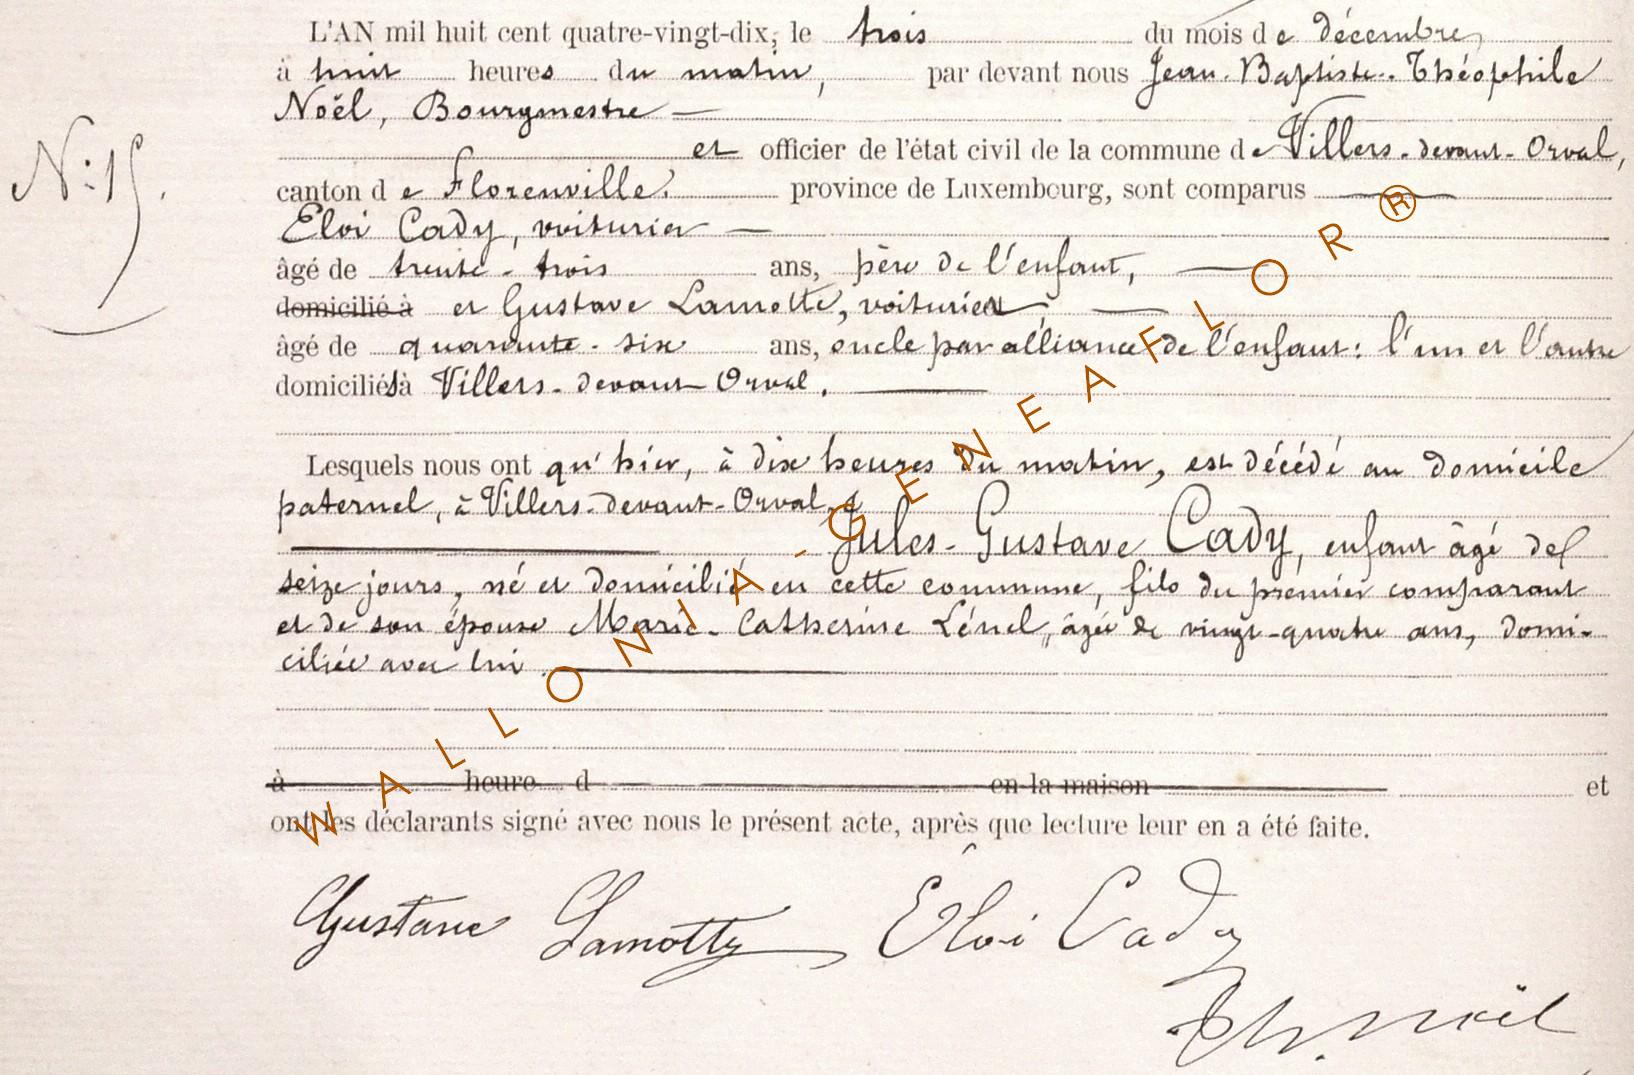 L'AN mil huit cent quatre-vingt-dix, le trois du mois de décembre,
à huit heures du matin, par devant nous Jean-Baptiste-Théophile
Noël, Bourgmestre
et officier de l'état civil de la commune de Villers-devant-Orval,
N°: 15.
canton de Florenville. province de Luxembourg, sont comparus
Eloi Cady, voiturier
âgé de trente-trois ans, père de l'enfant,
domicilié à et Gustave Lamotte, voiturier,
âgé de quarante-six ans, oncle par alliance de l'enfant: l'un et l'autre
domiciliés à Villers-devant-Orval.
Lesquels nous ont qu'hier, à dix heures du matin, est décédé au domicile
paternel, à Villers-devant-Orval,
Jules-Gustave Cady, enfant âgé de
seize jours, né et domicilié en cette commune, fils du premier comparant
et de son épouse Marie-Catherine Lénel, âgée de vingt-quatre ans, domi-
ciliée avec lui.
à heure d en la maison et
ont les déclarants signé avec nous le présent acte, après que lecture leur en a été faite.
Gustave Lamotte Eloi Cady
Th. Noël
WALLONIA-GENEAFLOR®